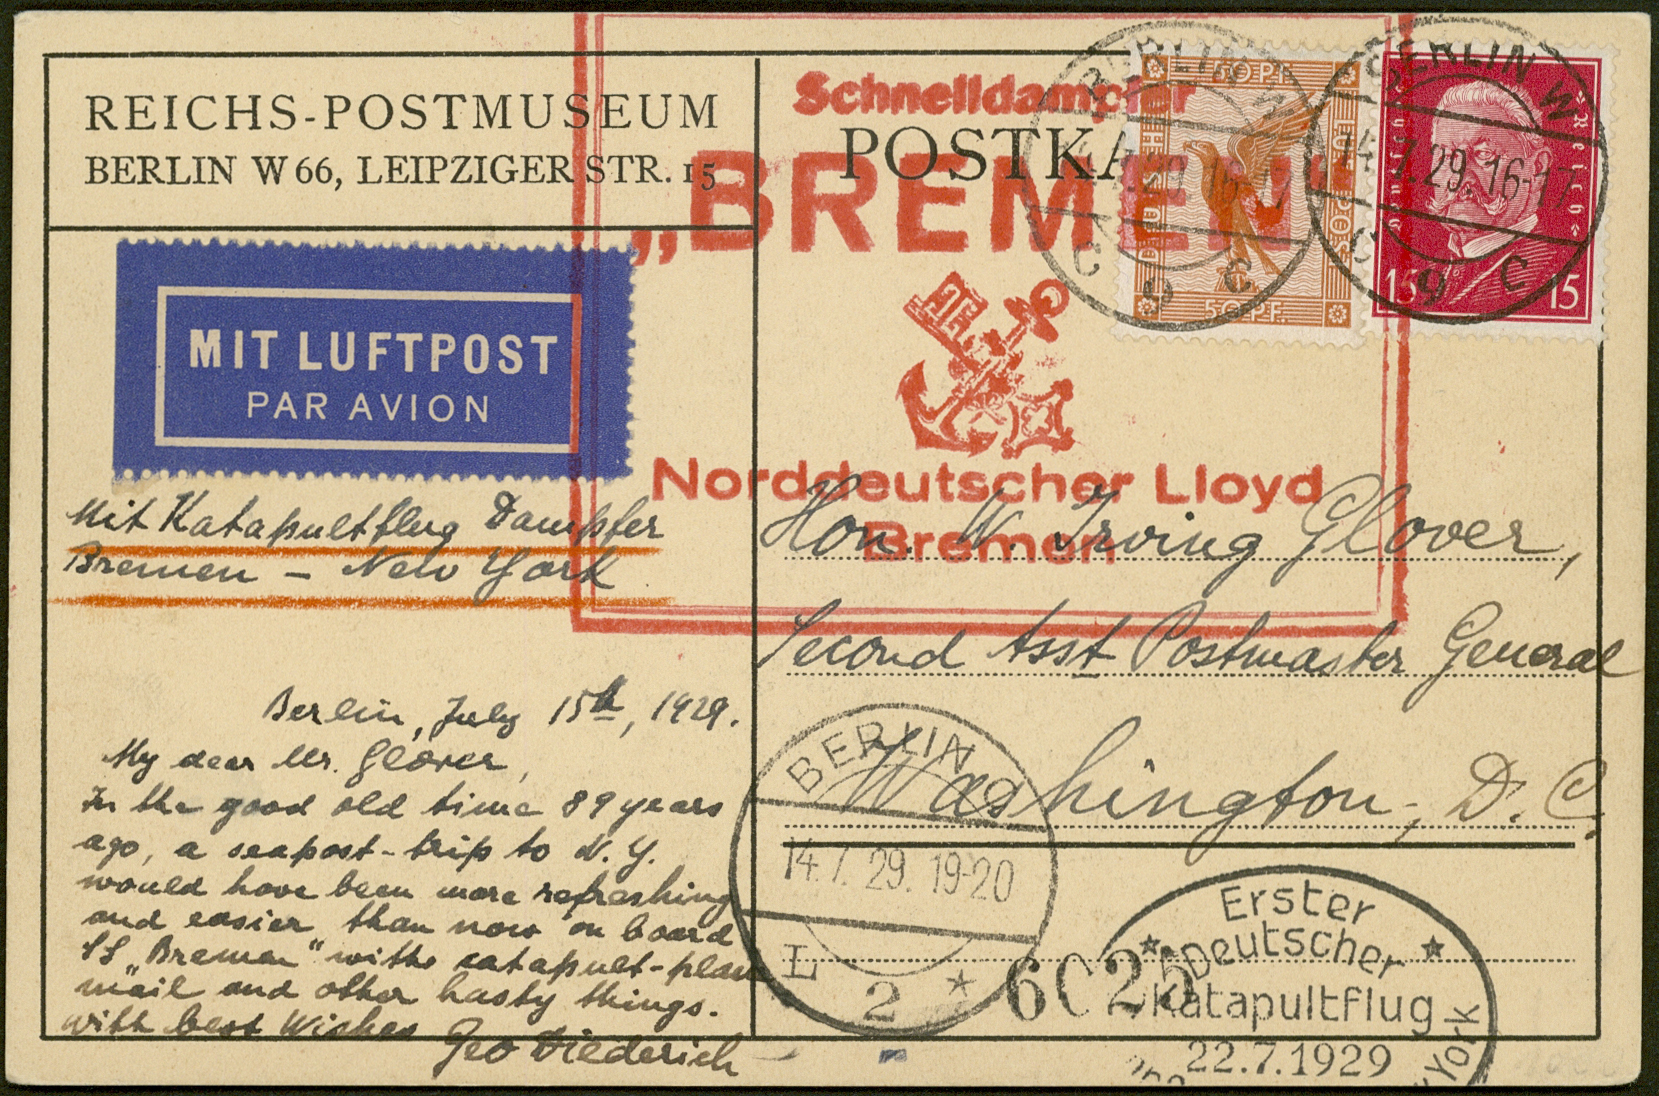 REICHS-POSTMUSEUM
BERLIN W 66, LEIPZIGER STR. 15
POSTKA
Schnelldampfer
„BREMEN"
Norddeutscher Lloyd
Bremen
BERLIN W
14.7.29.16-17
C 9 C
50 PF.
50 PF.
BERLIN W
14.7.29.16-17
C 9 C
Deutsches Reich
15 15
MIT LUFTPOST
PAR AVION
Mit Katapultflug Dampfer
Bremen – New York
Hon. W. Irving Glover,
Second Asst Postmaster General
Washington, D. C.
Berlin, July 15th, 1929.
My dear Mr. Glover,
In the good old time 89 years
ago, a seapost-trip to N. Y.
would have been more refreshing
and easier than now on board
SS „Bremen" with catapult-plane
mail and other hasty things.
With best Wishes Geo Diederich
BERLIN
14.7.29.19-20
L 2 *
6025
Erster
Deutscher
Katapultflug
22.7.1929
York